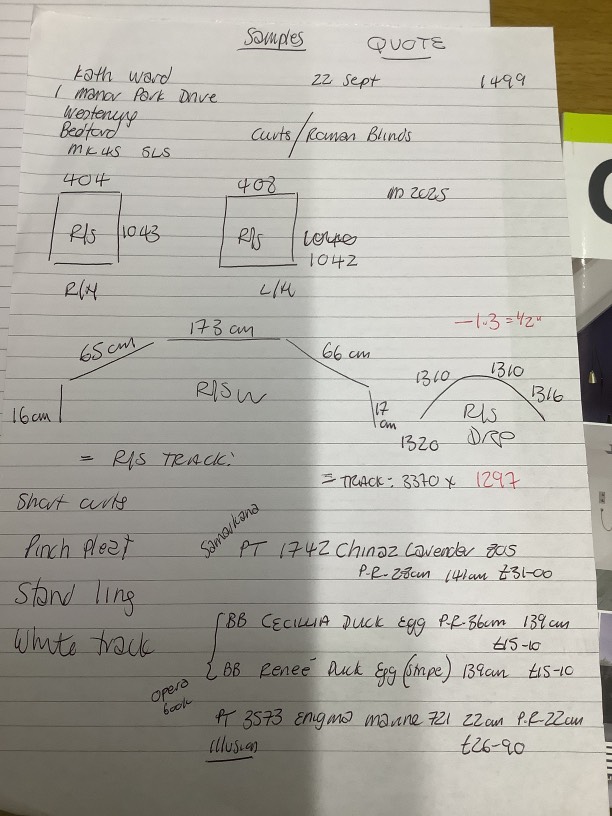 Samples QUOTE
Kath Ward 22 Sept 1499
1 Manor Park Drive
Bedford
Curts/Roman Blinds
MK45 5LS
404 408
2025
R/S 1043 R/S
1042
R/H L/H
-1.3 = 1/2"
173 cm
65 cm 66 cm
1310 1310
1316
16cm R/S W 17 cm R/S
1320 DROP
= R/S TRACK:
= TRACK: 3370 x 1297
Short curts
Samarkand
Pinch pleat PT 1742 Chinaz Lavender 805
P.R. 28cm 141cm £31-00
Stand ling
BB CECILLIA DUCK Egg P.R. 36cm 139cm
£15-10
White track
BB Reneé Duck Egg (Stripe) 139cm £15-10
Opera book
PT 3573 Enigma marine 721 22cm P.R-22cm
illusion £26-90